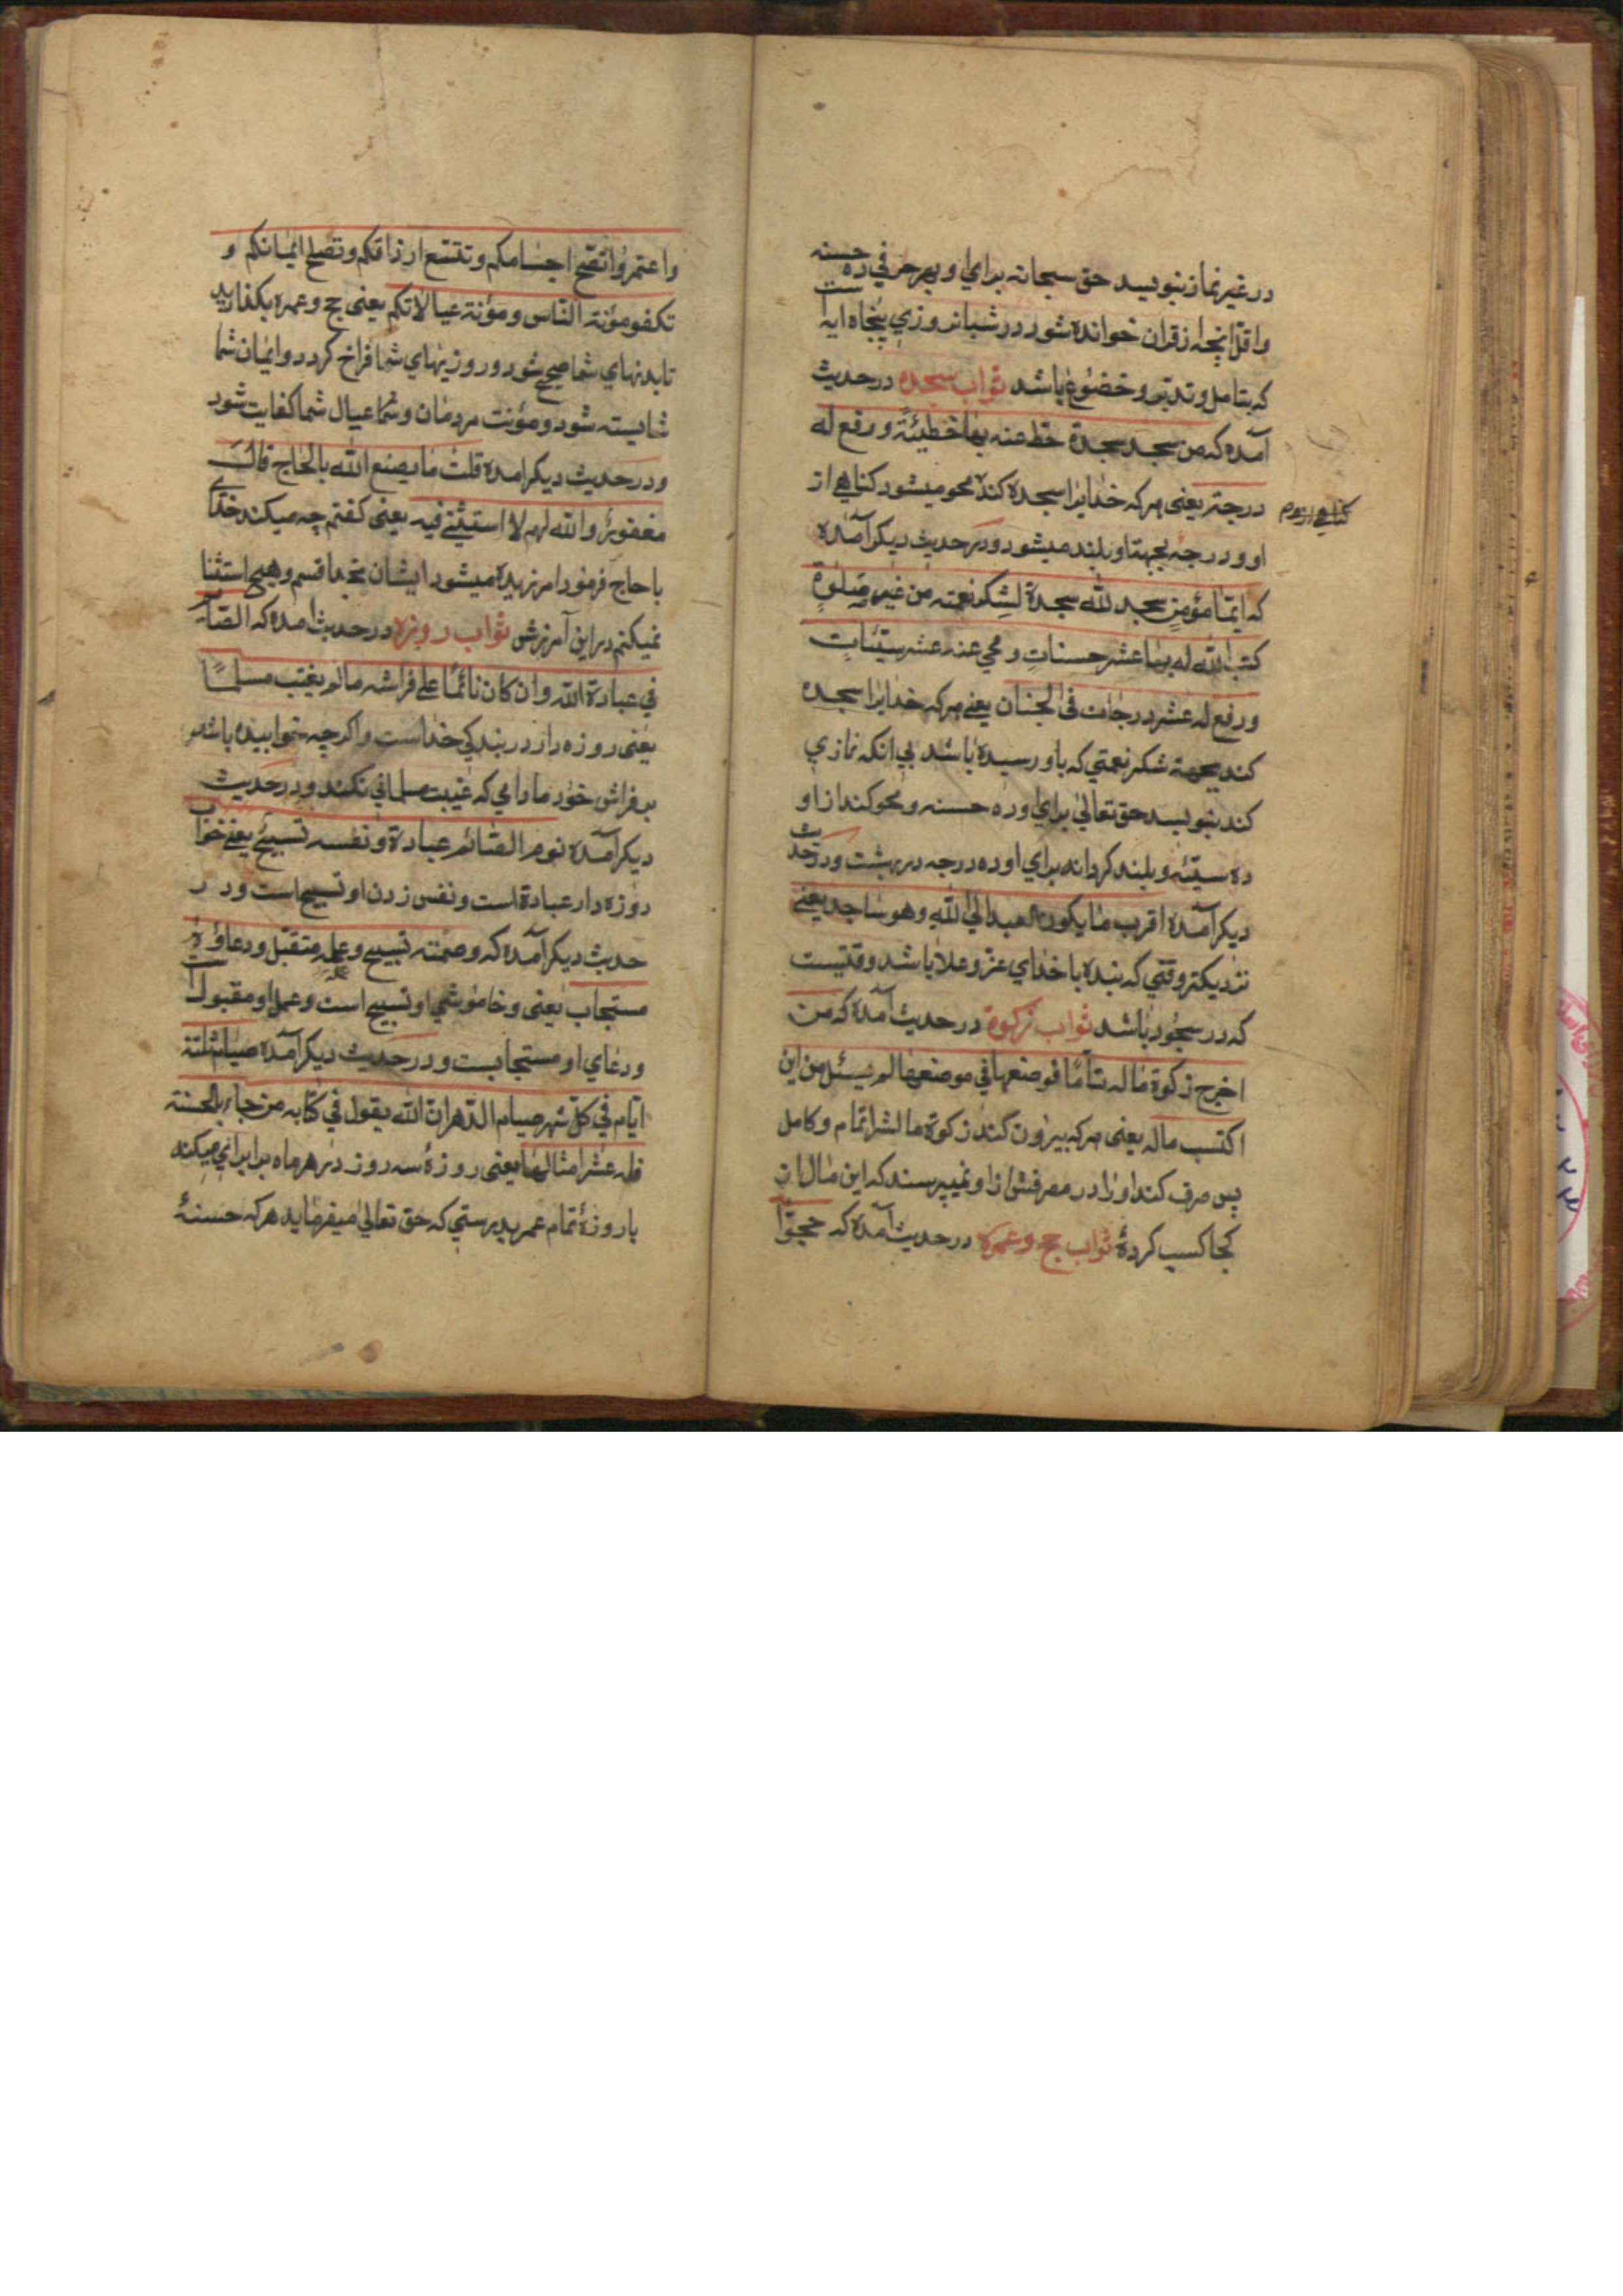 در غیر نماز بنویسد حق سبحانه برای او بهر حرفی ده حسنه
و اقل انچه از قران خوانده شود در شبانروزی پنجاه ایه است
که بتامل و تدبر و خضوع باشد ثواب سجده در حدیث
آمده که من سجد سجدة حط عنه بها خطیئة و رفع له
درجة یعنی هر که خدایرا سجده کند محو میشود کناهی از
او و درجه بجهة او بلند میشود و در حدیث دیکر آمده
که ایما مؤمن سجد لله سجدة لشکر نعمته من غیر صلوة
کتب الله له بها عشر حسنات و محی عنه عشر سیئات
و رفع له عشر درجات فی الجنان یعنی هر که خدایرا سجده
کند بجهة شکر نعمتی که باو رسیده باشد بی انکه نمازی
کند بنویسد حق تعالی برای او ده حسنه و محو کند از او
ده سیئه و بلند کرداند برای او ده درجه در بهشت و در حدیث
دیکر آمده اقرب ما یکون العبد الی الله و هو ساجد یعنی
نزدیکتر وقتی که بنده با خدای عز و علا باشد وقتیست
که در سجود باشد ثواب زکوة در حدیث آمده که من
اخرج زکوة ماله تامّا فوضعها فی موضعها لم یسئل من این
اکتسب ماله یعنی هر که بیرون کند زکوة مالش را تمام و کامل
پس صرف کند او را در مصرفش از او نمیپرسند که این مال از
کجا کسب کردۀ ثواب حج و عمره در حدیث آمده که حجّوا
و اعتمروا تصّح اجسامکم و تتسع ارزاقکم و تصلح ایمانکم و
تکفو مؤنة الناس و مؤنة عیالاتکم یعنی حج و عمره بکذارید
تا بدنهای شما صحیح شود و روزیهای شما فراخ کردد و ایمان شما
شایسته شود و مؤنت مردمان و عیال شما کفایت شود
و در حدیث دیکر امده قلت ما یصنع الله بالحاج قال
مغفور والله لهم لا استثنی فیه یعنی کفتم چه میکند خدای
با حاج فرمود امرزیده میشود ایشان بخدا قسم و هیچ استثنا
نمیکنم در این آمرزش ثواب روزه در حدیث امده که الصائم
فی عبادة الله و ان کان نائمًا علی فراشه ما لم یغتب مسلمًا
یعنی روزه دار در بندکی خداست و اکرچه خوابیده باشد
بر فراش خود مادامی که غیبت مسلمانی نکند و در حدیث
دیکر آمده نوم الصائم عبادة و نفسه تسبیح یعنی خواب
روزه دار عبادة است و نفس زدن او تسبیح است و در
حدیث دیکر آمده که و صمته تسبیح و عمله متقبل و دعاؤه
مستجاب یعنی و خاموشی او تسبیح است و عمل او مقبول است
و دعای او مستجابست و در حدیث دیکر آمده صیام ثلثة
ایام فی کل شهر صیام الدهر ان الله یقول فی کتابه من جاء بالحسنة
فله عشر امثالها یعنی روزۀ سه روز در هر ماه برابرای میکند
با روزۀ تمام عمر بدرستی که حق تعالی میفرماید هر که حسنۀ